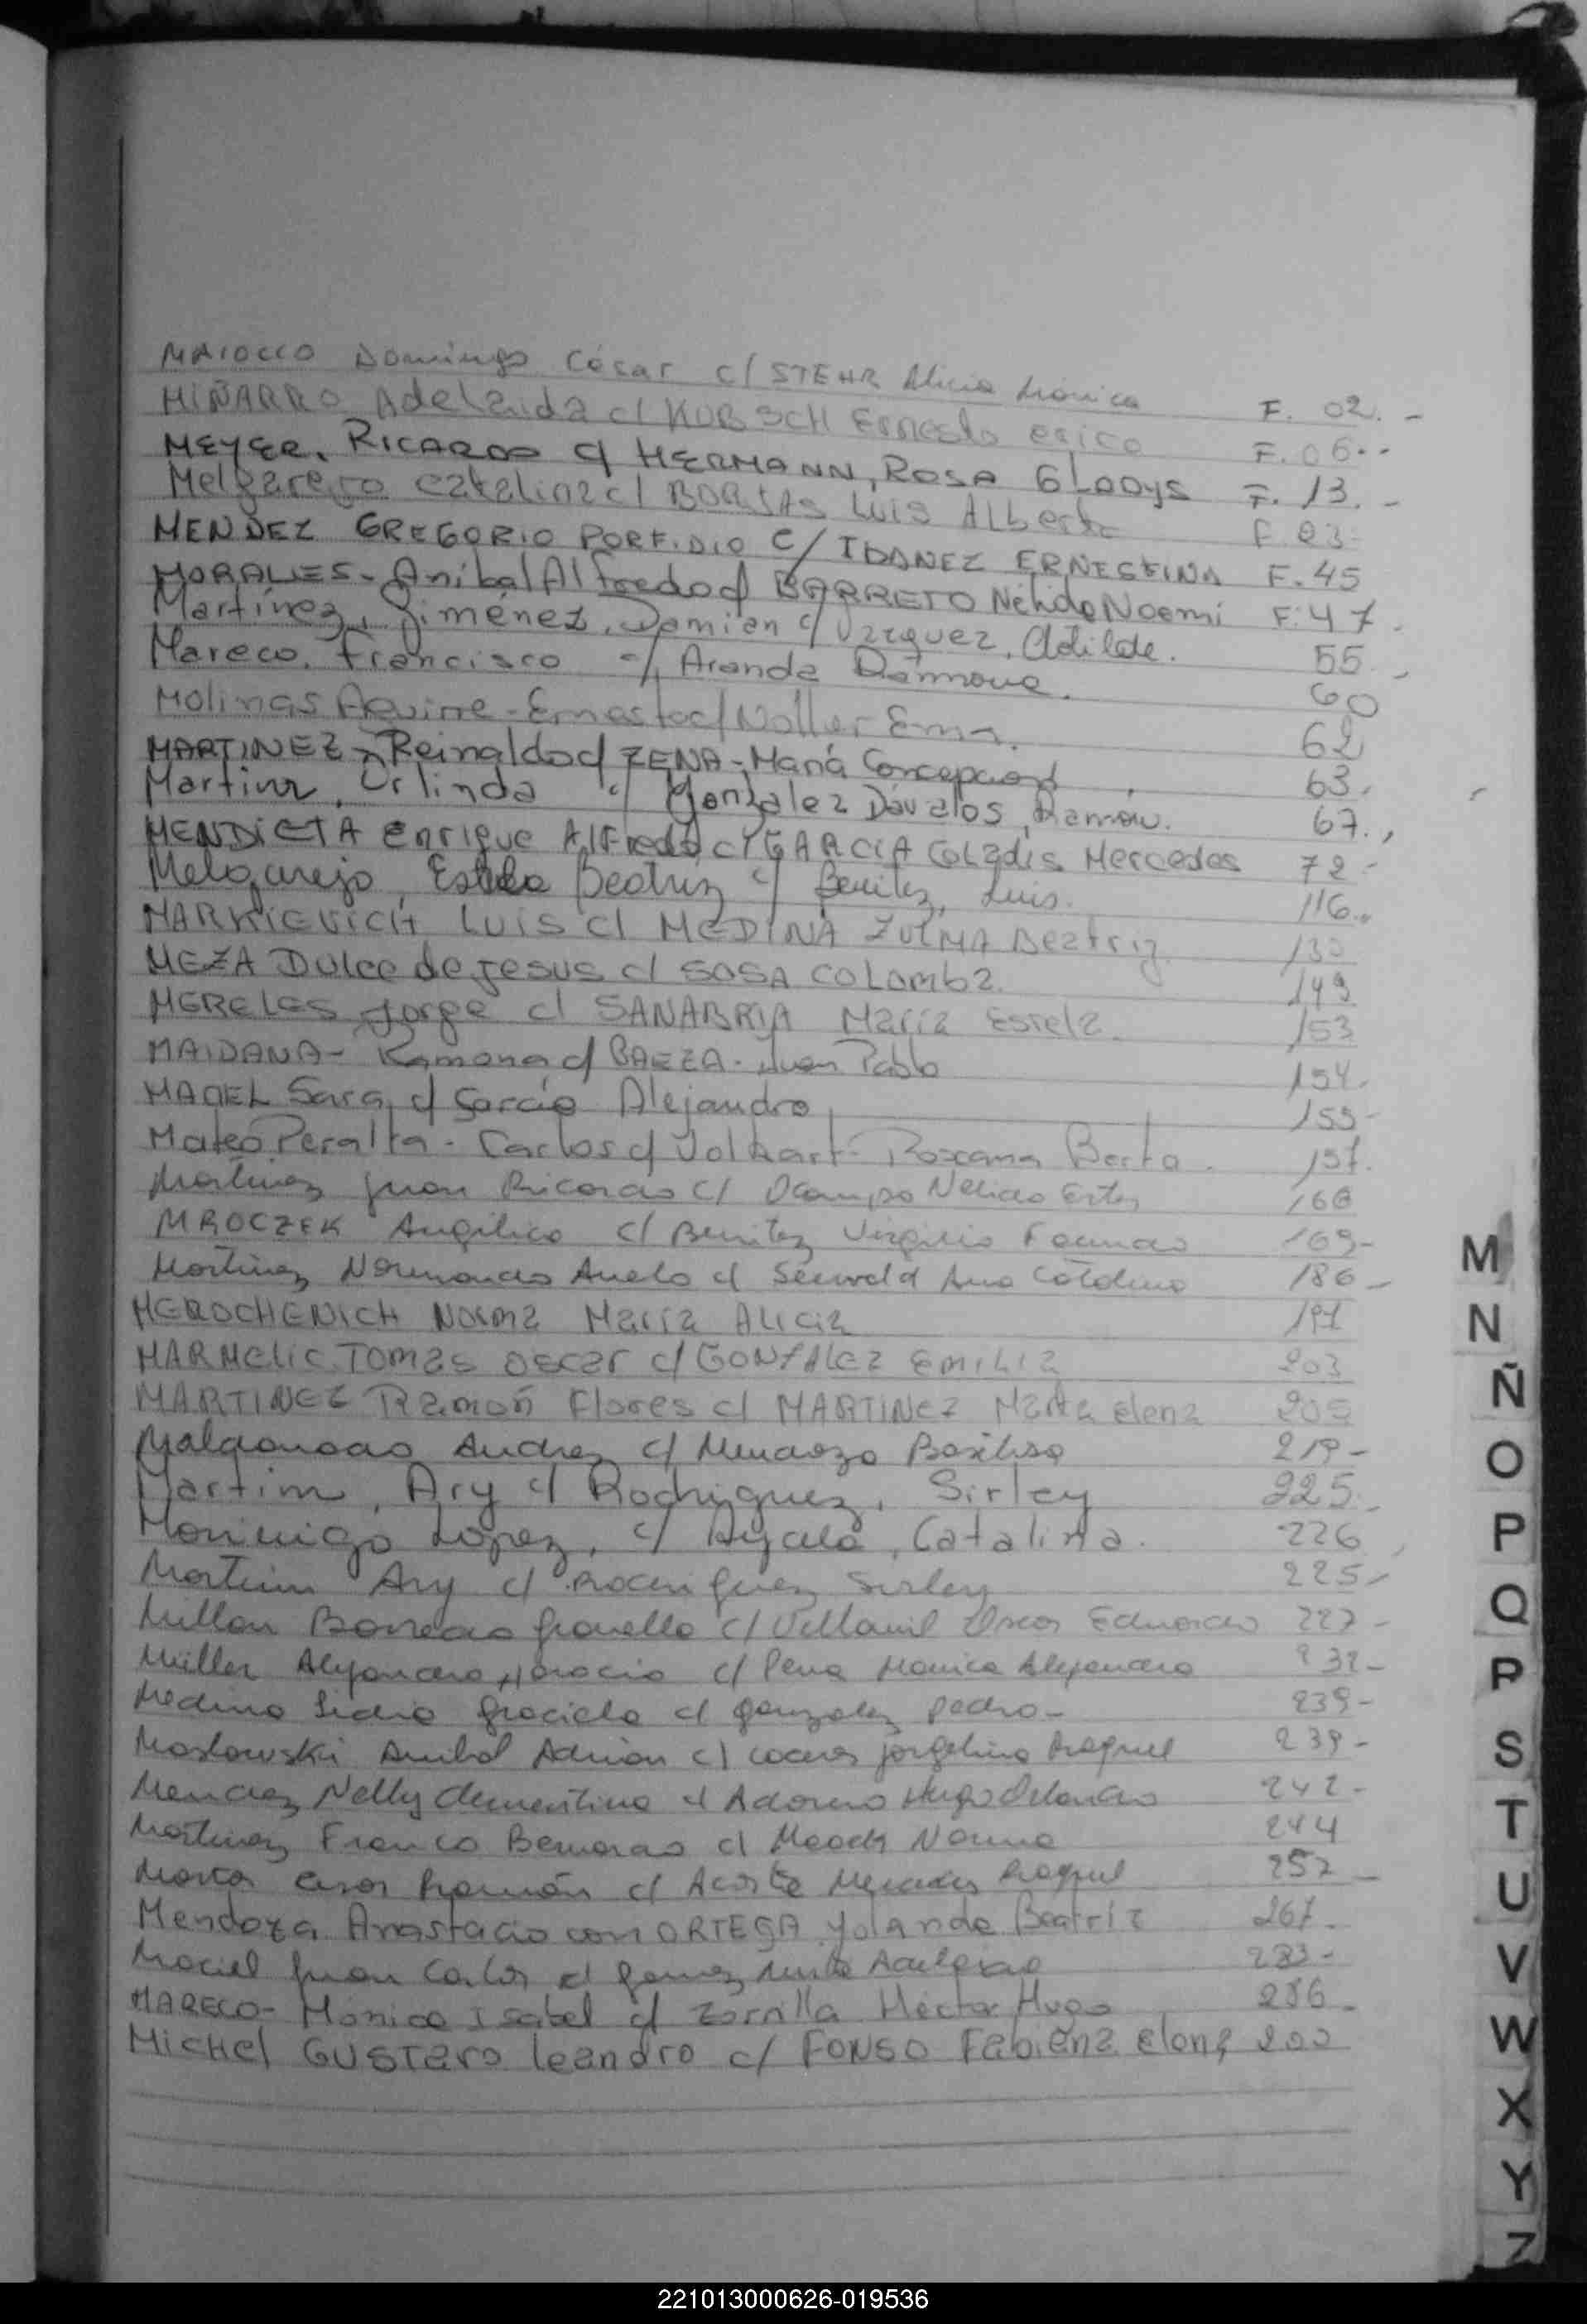 MAIOCCO Domingo César c/ STEHR Alicia Mónica F. 02. -
MIÑARRO Adelaida c/ KUBSCH Ernesto erico F. 06--
MEYER, RICARDO c/ HERMANN, ROSA GLADYS F. 13. -
Melgarejo Catalina c/ BORJAS Luis ALberto F. 23-
MENDEZ GREGORIO PORFIDIO C/ IBANEZ ERNESTINA F. 45
MORALES- Aníbal Alfredo c/ BARRETO Nélida Noemí F. 47.
Martínez, Jiménez, Damián c/ Vazquez, Clotilde. 55.
Mareco, Francisco c/ Aranda Ramona. 60
Molinas Aquirre - Ernesto c/ Noller Ema. 62
MARTINEZ - Reinaldo c/ ZENA - María Concepción 63.
Martinez, Orlinda c/ González Dávalos, Ramón. 67.,
MENDIETA Enrique Alfredo c/ GARCIA Coladis Mercedes 72-
Melgarejo, Estela Beatriz c/ Benitez, Luis. 116.
MARKIEVICH LUIS c/ MEDINA ZULMA Beatriz 130
MEZA Dulce de Jesus c/ SOSA COLOMba. 149
MERELES Jorge c/ SANABRIA María Estela 153
MAIDANA- Ramona c/ BAEZA- Juan Pablo 154.
Sara c/ García Alejandro 155-
Mateo Peralta - Carlos c/ Volkart- Roxana Berta. 157.
Martinez Juan Ricardo c/ Ocampo Nelida Ester 166
MROCZEK Angélica c/ Benitez Virginio Facundo 169-
Martinez Normando c/ Ana Catalina 186-
MEROCHENICH Norma María Alicia 191
MARMelic TOMAS Oscar c/ GONZALEZ EMILIA 203
MARTINEZ Ramón Flores c/ MARTINEZ María elena 205
Maldonado Andres c/ Mendoza Basilisa 219-
Martim, Ary c/ Rodriguez, Sirley 225.
Morinigo Lopez, c/ Ayala, Catalina. 226
Martim Ary c/ Rodriguez Sirley 225-
Millan Barredo c/ Villamil Oscar Eduardo 227-
Müller Alejandro Horacio c/ Pena Monica Alejandra 232-
Medina Lidia Graciela c/ Gonzalez Pedro- 239-
Maslowski Anibal Adrian c/ Jorgelina Raquel 239-
Mendez Nelly Clementina c/ Adorno Hugo Orlando 242-
Martinez Franco Bernardo c/ Norma 244
Cesar Ramón c/ Acosta Mercedes Raquel 252-
Mendoza Anastacio con ORTEGA Yolanda Beatriz 267.
Maciel Juan Carlos c/ Gomez 283-
MARECO- Mónica Isabel c/ Zorrilla Héctor Hugo 286-
Michel GUSTavo leandro c/ FONSO Fabiana Elena 200
M
N
Ñ
O
P
Q
R
S
T
U
V
W
X
Y
Z
221013000626-019536